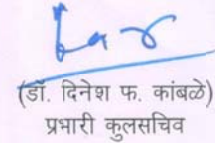 (डॉ. दिनेश फ. कांबळे)
प्रभारी कुलसचिव